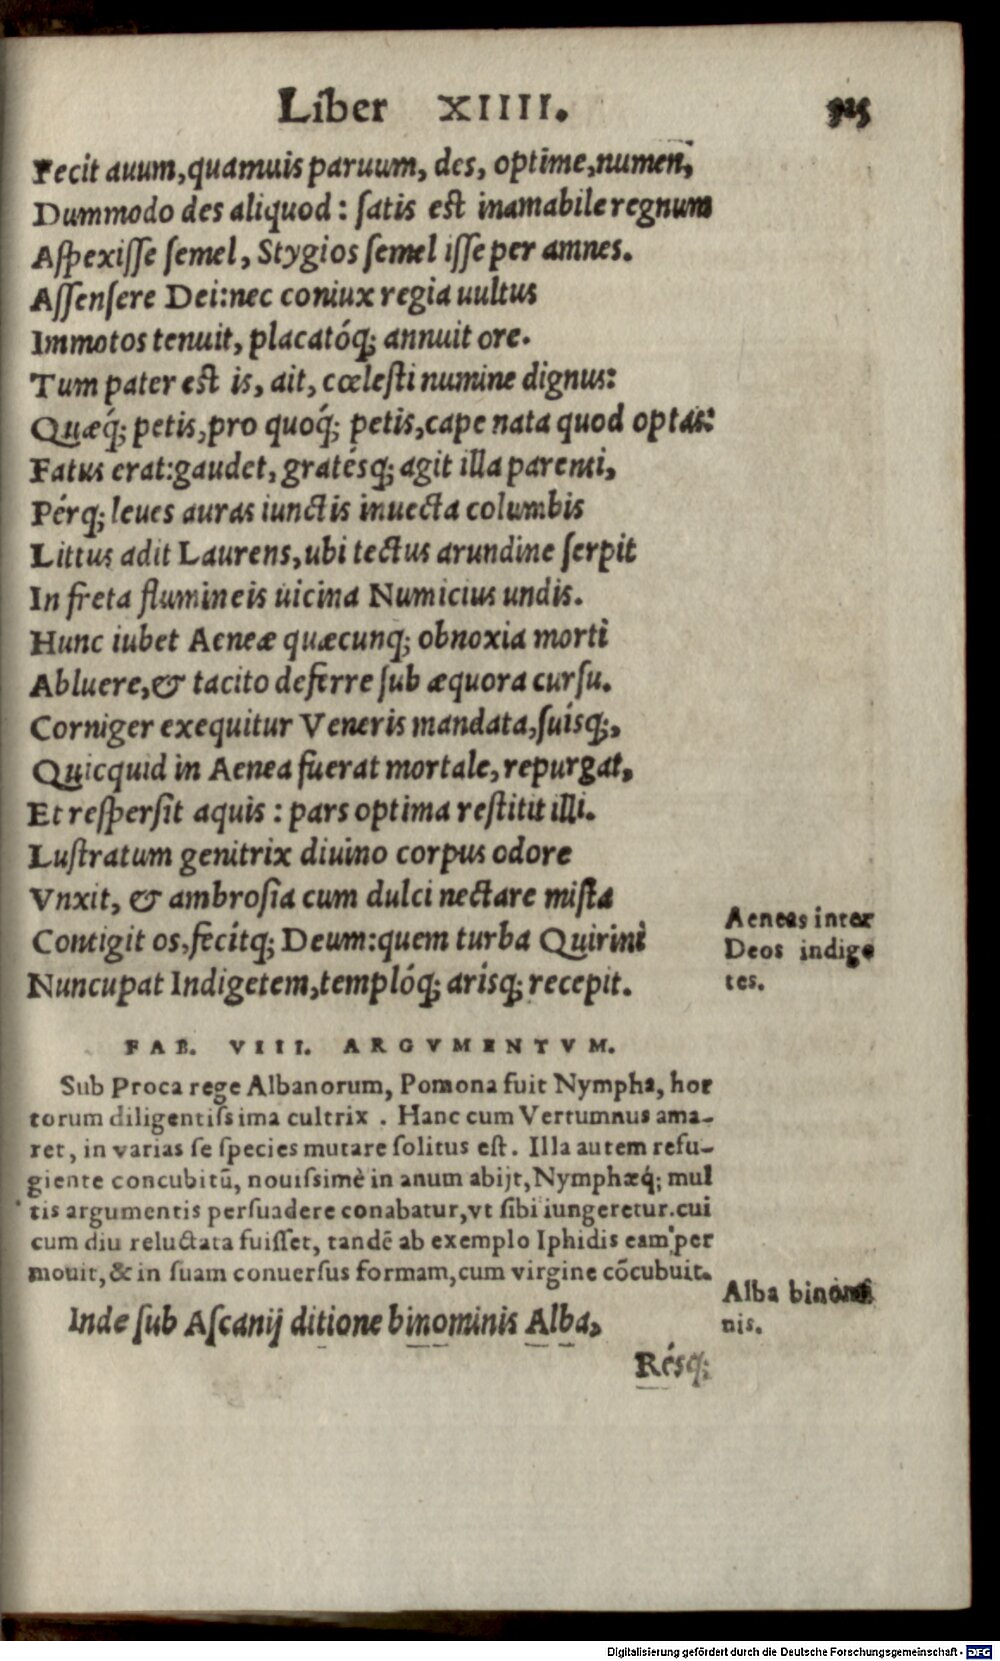 Liber XIIII.
Fecit auum, quamuis paruum, des, optime, numen,
Dummodo des aliquod: satis est inamabile regnum
Aspexisse semel, Stygios semel isse per amnes.
Assensere Dei: nec coniux regia uultus
Immotos tenuit, placatóq; annuit ore.
Tum pater est is, ait, cœlesti numine dignus:
Quæq́; petis, pro quoq́; petis, cape nata quod optas:
Fatus erat: gaudet, gratésq; agit illa parenti,
Pérq; leues auras iunctis inuecta columbis
Littus adit Laurens, ubi tectus arundine serpit
In freta flumineis uicina Numicius undis.
Hunc iubet Aeneæ quæcunq; obnoxia morti
Abluere, & tacito deferre sub æquora cursu.
Corniger exequitur Veneris mandata, suisq;,
Quicquid in Aenea fuerat mortale, repurgat,
Et respersit aquis: pars optima restitit illi.
Lustratum genitrix diuino corpus odore
Vnxit, & ambrosia cum dulci nectare mista
Contigit os, fecítq; Deum: quem turba Quirini
Nuncupat Indigetem, templóq; arisq; recepit.
Aeneas inter
Deos indige
tes.
FAB. VIII. ARGVMENTVM.
Sub Proca rege Albanorum, Pomona fuit Nympha, hor
torum diligentissima cultrix. Hanc cum Vertumnus ama-
ret, in varias se species mutare solitus est. Illa autem refu-
giente concubitū, nouissimè in anum abijt, Nymphæq́; mul
tis argumentis persuadere conabatur, vt sibi iungeretur. cui
cum diu reluctata fuisset, tandē ab exemplo Iphidis eam per
mouit, & in suam conuersus formam, cum virgine cōcubuit.
Inde sub Ascanij ditione binominis Alba,
Alba binomi
nis.
Résq;
Digitalisierung gefördert durch die Deutsche Forschungsgemeinschaft - DFG